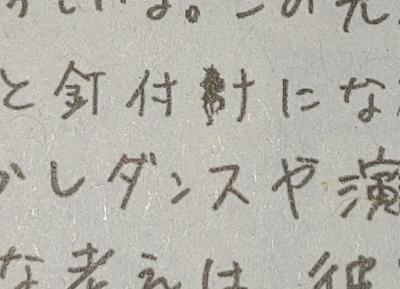 いる。この
と釘付けにな
かしダンスや演
な考えは、彼